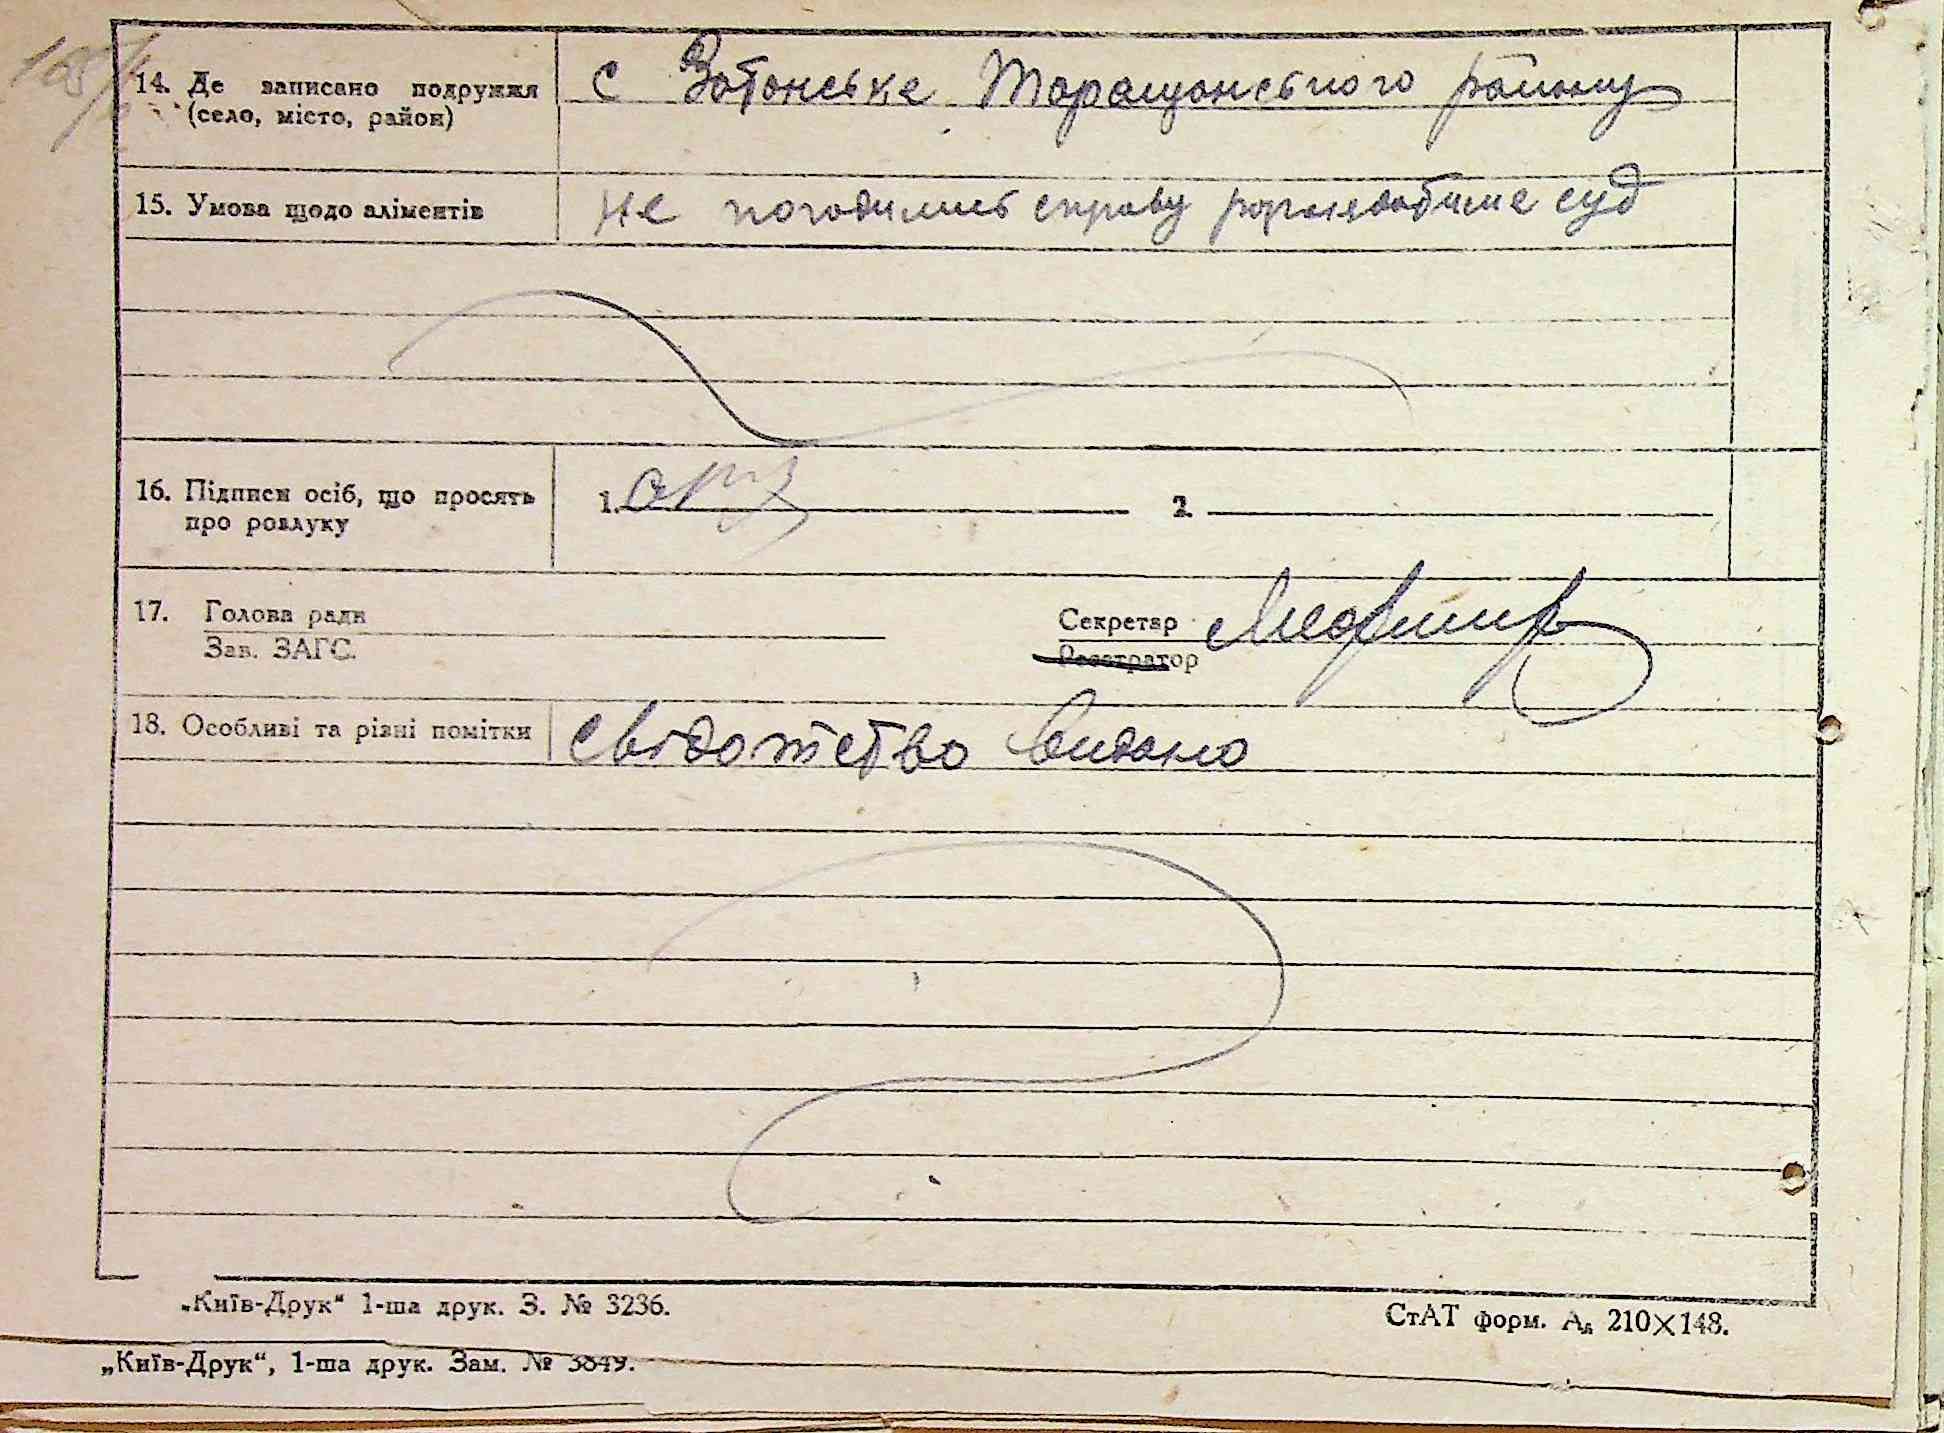 14. Де записано подружжя
(село, місто, район)
с Затонське Таращанського району
15. Умова щодо аліментів
не погодились справу розглядатиме суд
16. Підписи осіб, що просять
про розлуку
1.
2.
17. Голова ради
Зав. ЗАГС.
Секретар
Реєстратор
18. Особливі та різні помітки
свідотство видано
„Київ-Друк“ 1-ша друк. З. № 3236.
СтАТ форм. А₅ 210×148.
„Київ-Друк“, 1-ша друк. Зам. № 3849.